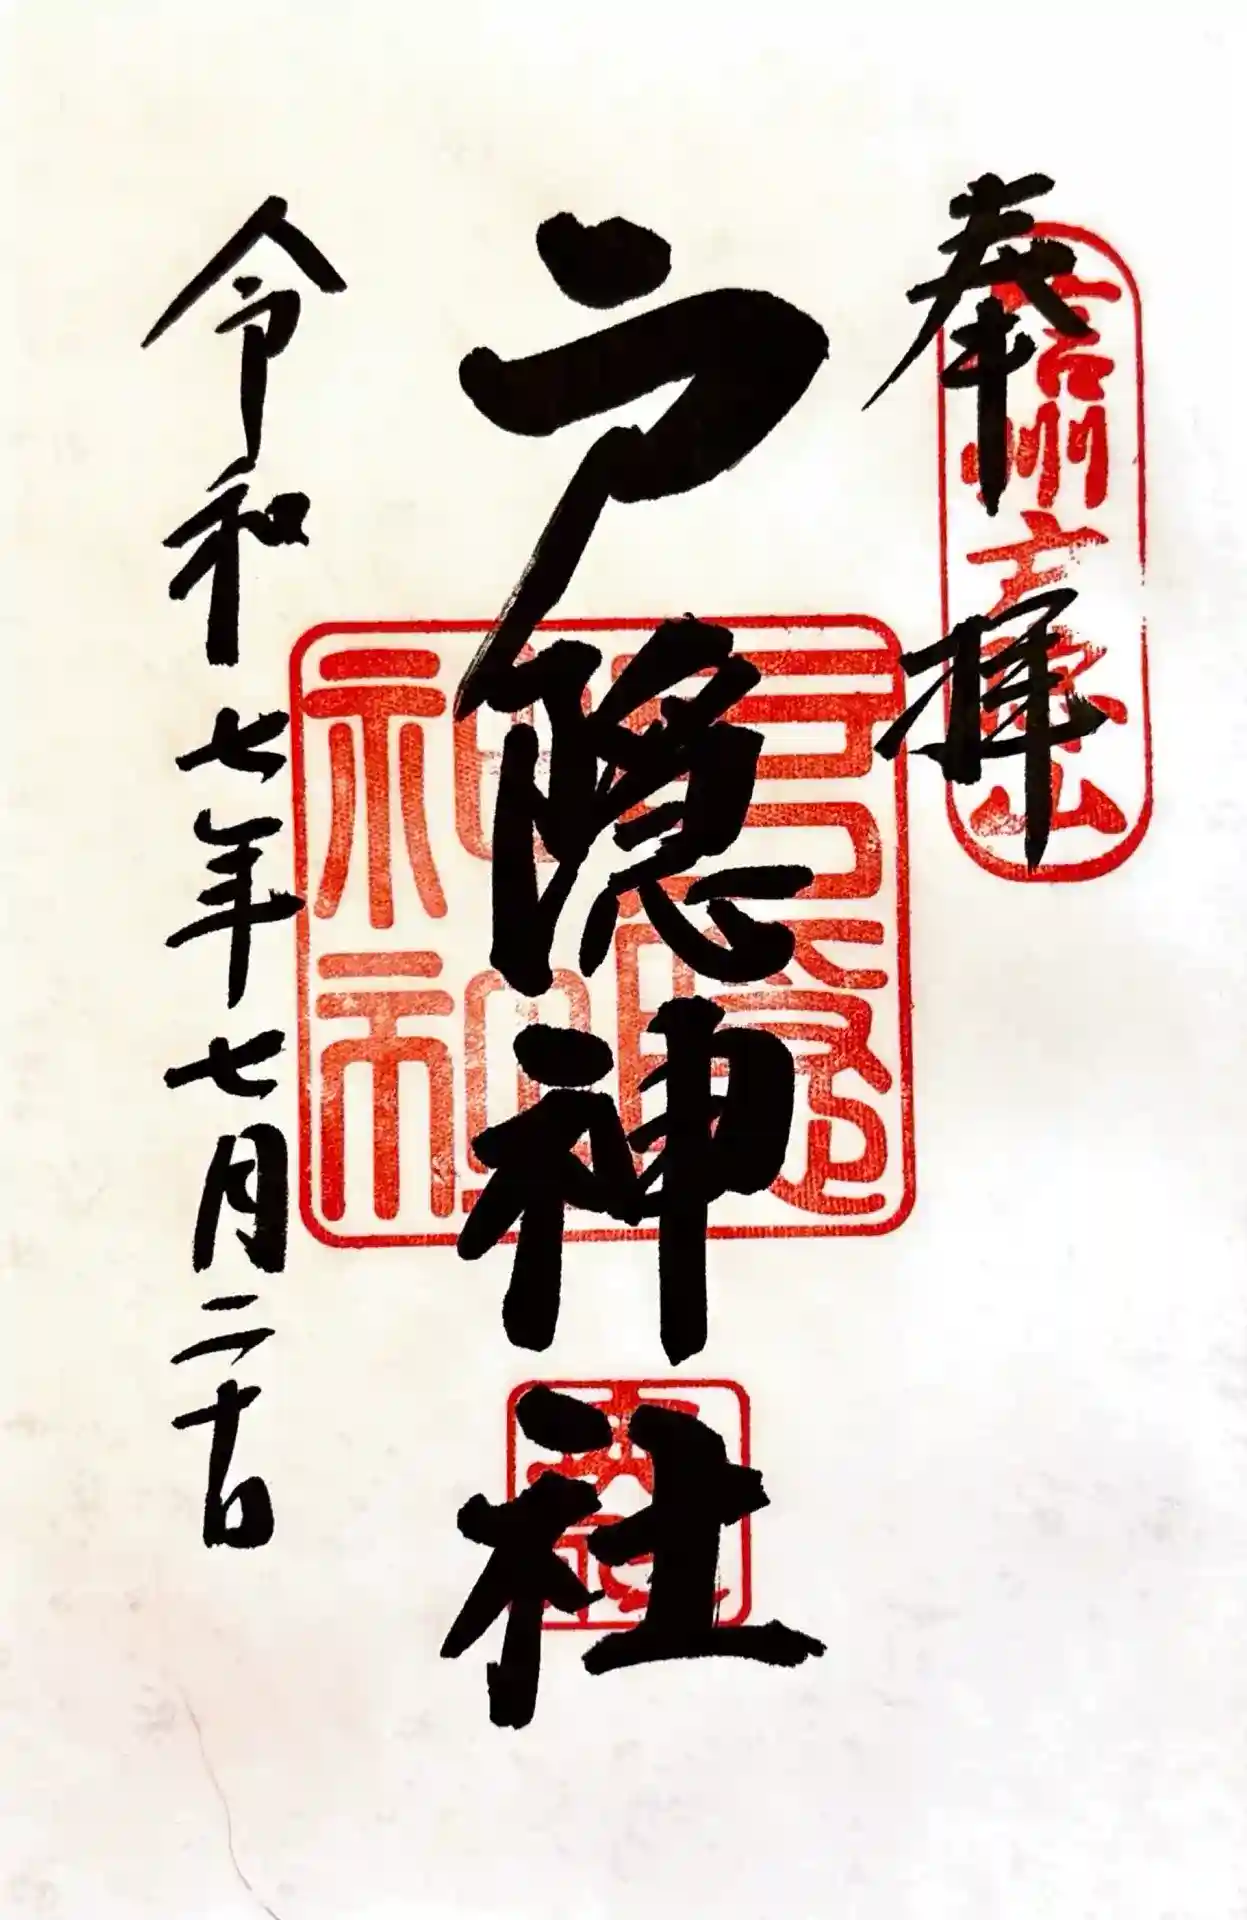 奉拝
信州戸隠山
戸隠神社
令和七年七月二十日